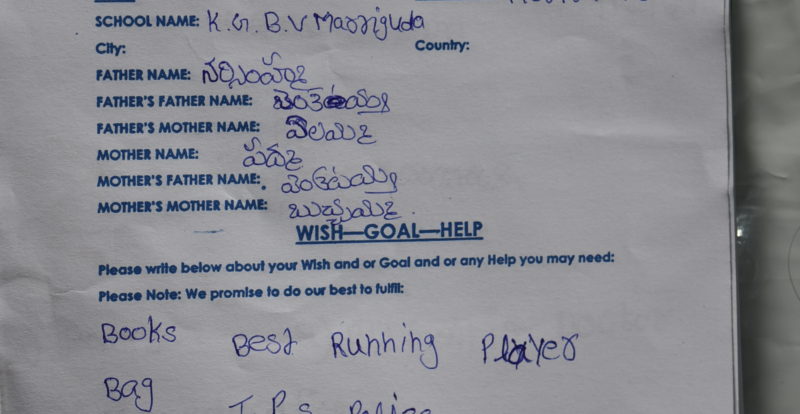 SCHOOL NAME: K.G.B.V Marriguda
City: Country:
FATHER NAME: నర్సింహ్మ
FATHER'S FATHER NAME: వెంకటయ్య
FATHER'S MOTHER NAME:
MOTHER NAME: పద్మ
MOTHER'S FATHER NAME: వెంకటయ్య
MOTHER'S MOTHER NAME: బుచ్చమ్మ
WISH—GOAL—HELP
Please write below about your Wish and or Goal and or any Help you may need:
Please Note: We promise to do our best to fulfil:
Books Best Running Player
Bag I.P.S Police